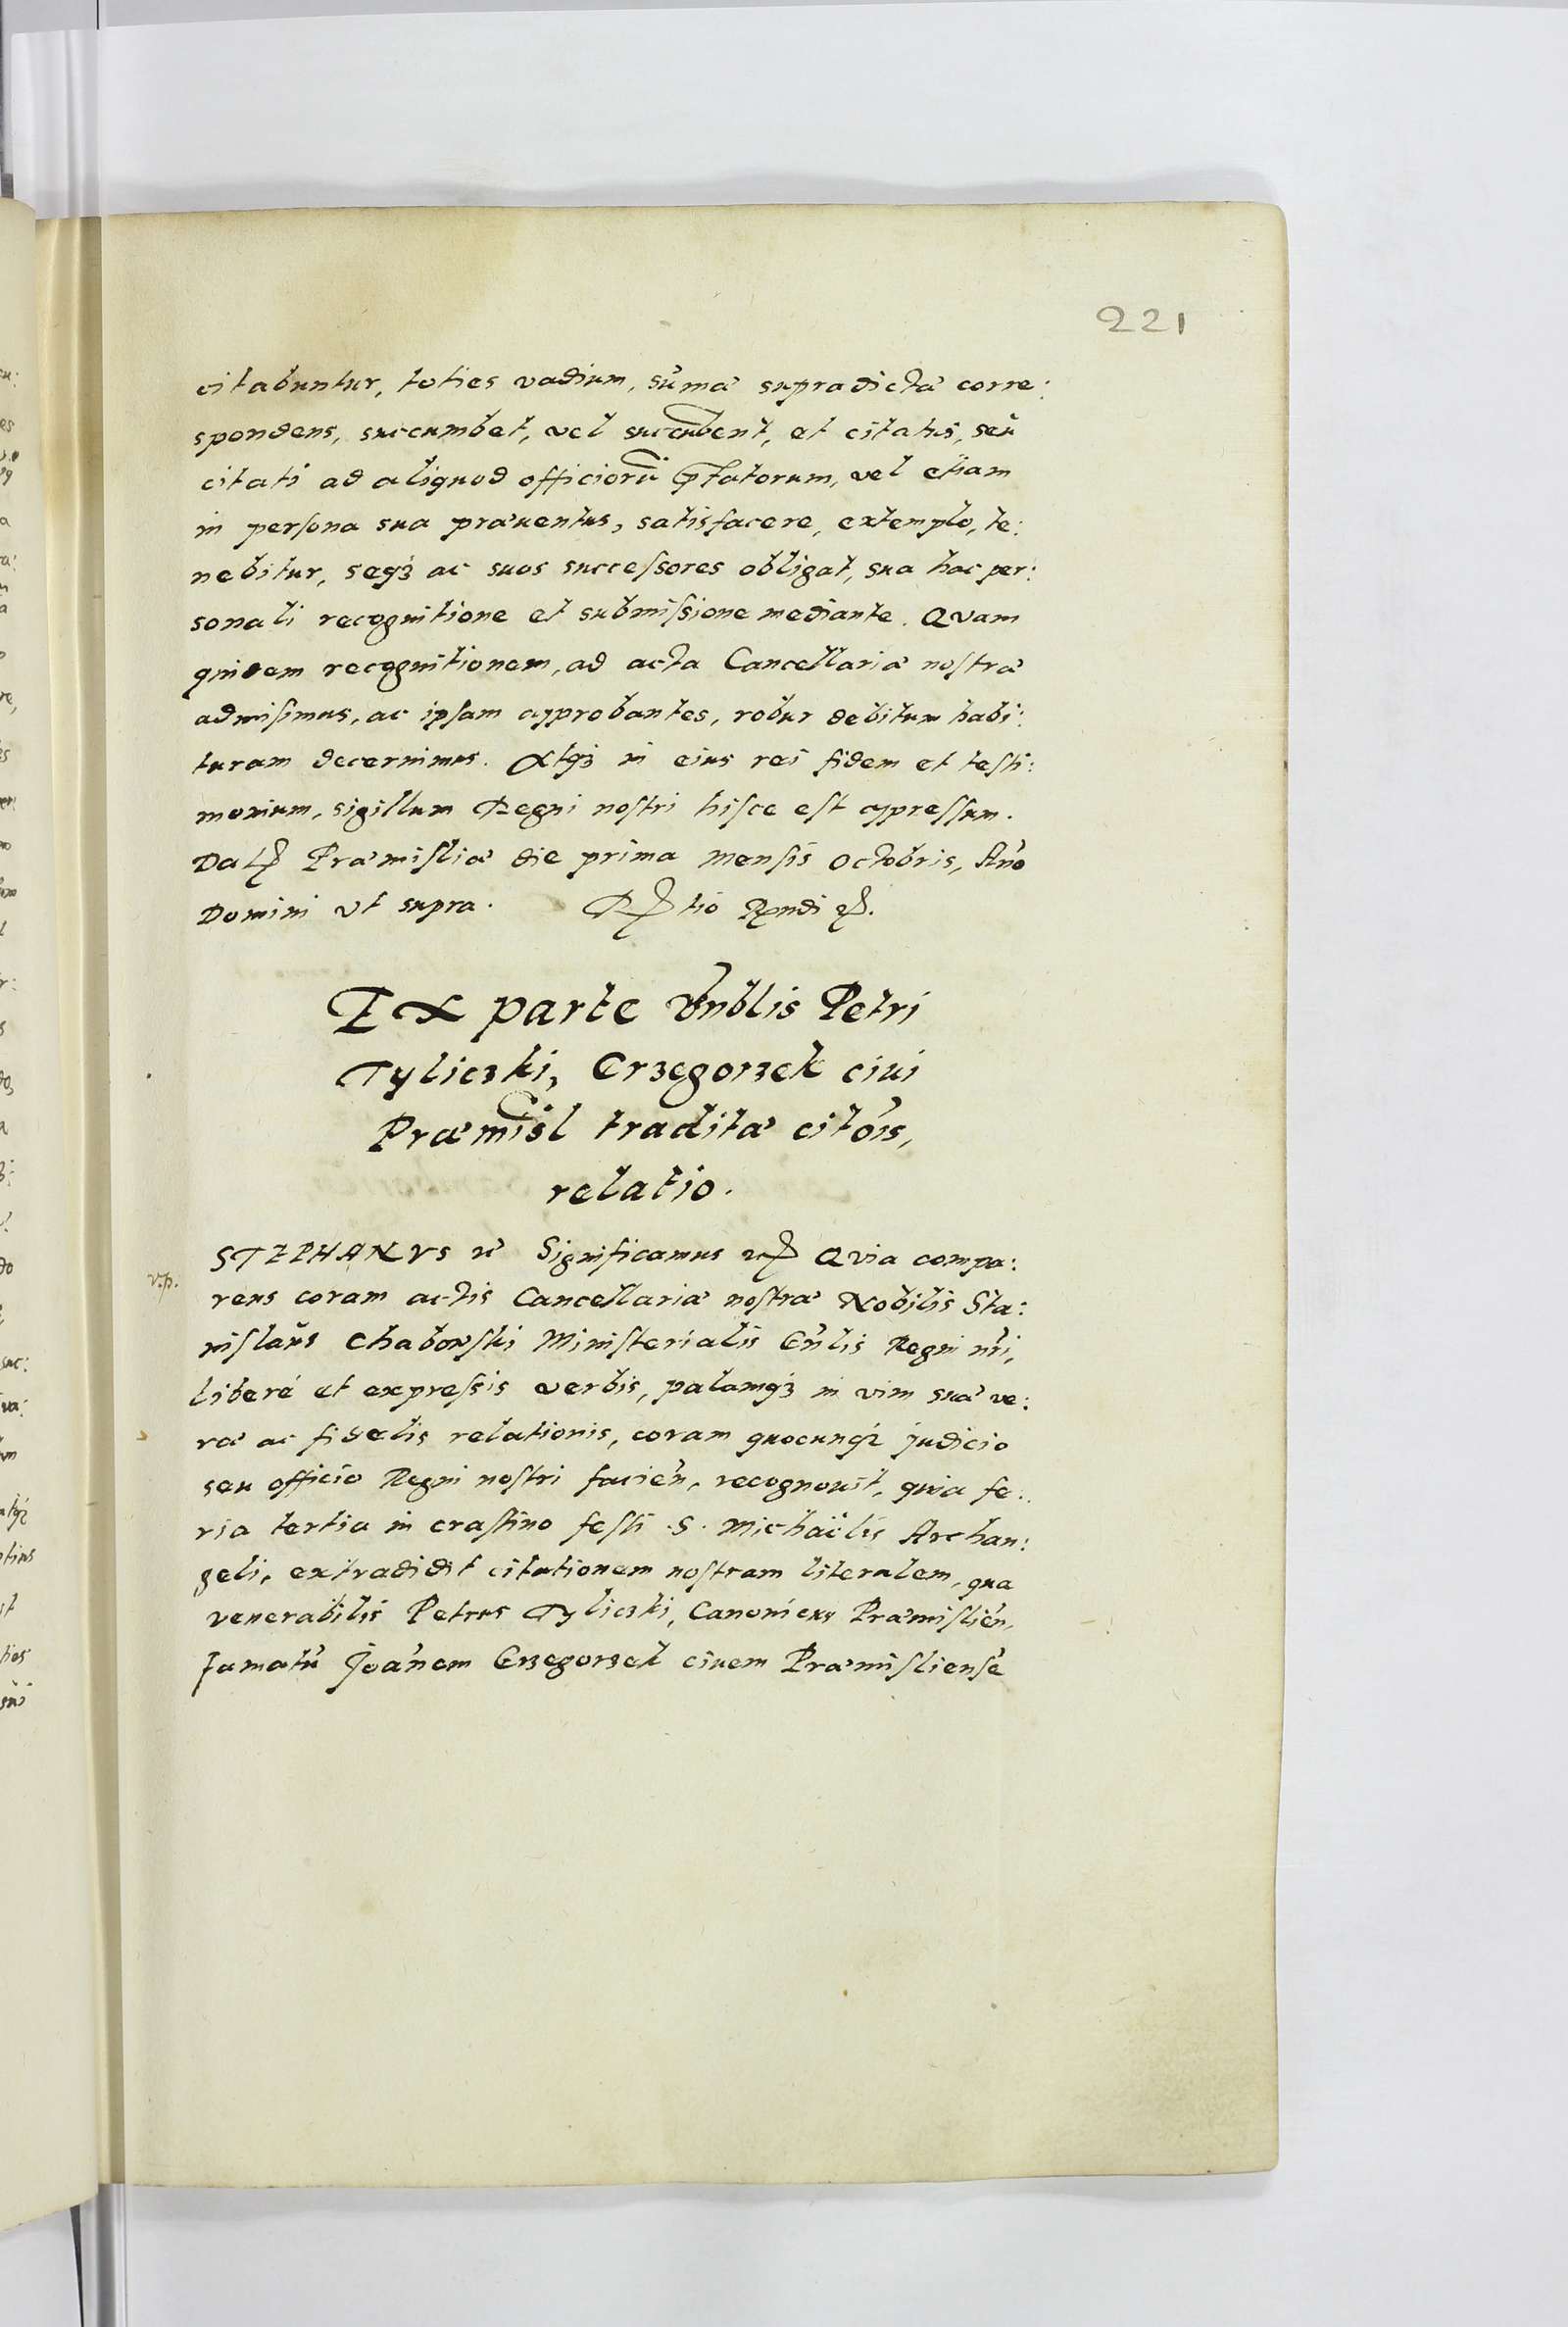 221
citabuntur, toties vadium, sūmæ supradictæ corre:
spondens, succumbet, vel succūbent, et citatus, seu
citati ad aliquod officiorū p̄fatorum, vel etiam
in persona sua præuentus, satisfacere, extemplo, te:
nebitur, seq3 ac suos successores obligat, sua hac per:
sonali recognitione et submissione mediante. Quam
quidem recognitionem, ad acta Cancellariæ nostræ
admisimus, ac ipsam approbantes, robur debitum habi:
turam decernimus. Atq3 in eius rei fidem et testi:
monium, sigillum Regni nostri hisce est appressum.
Dat Præmisliæ die prima mensis Octobris, Año
Domini vt supra. tio Rndi
Ex parte Vnblis Petri
Tyliczki, Grzegorzek ciui
Præmisl traditæ citōis,
relatio.
STEPHANVS rc̄ Significamus Quia compa:
v.p.
rens coram actis Cancellariæ nostræ Nobilis Sta:
nislaus Chabowski Ministerialis Gn̄lis Regni nr̄i,
liberè et expressis verbis, palamq3 in vim suæ ve:
ræ ac fidelis relationis, coram quocunq3 judicio
seu officio Regni nostri facien̄, recognouit, quia fe:
ria tertia in crastino festi S. Michaëlis Archan:
geli, extradidit citationem nostram literalem, qua
venerabilis Petrus Tyliczki, Canonicus Præmislien̄,
famatū Joānem Grzegorzek ciuem Præmisliensē